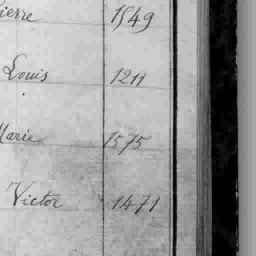 ierre 1549
Louis 1211
Marie 1575
Victor 1471